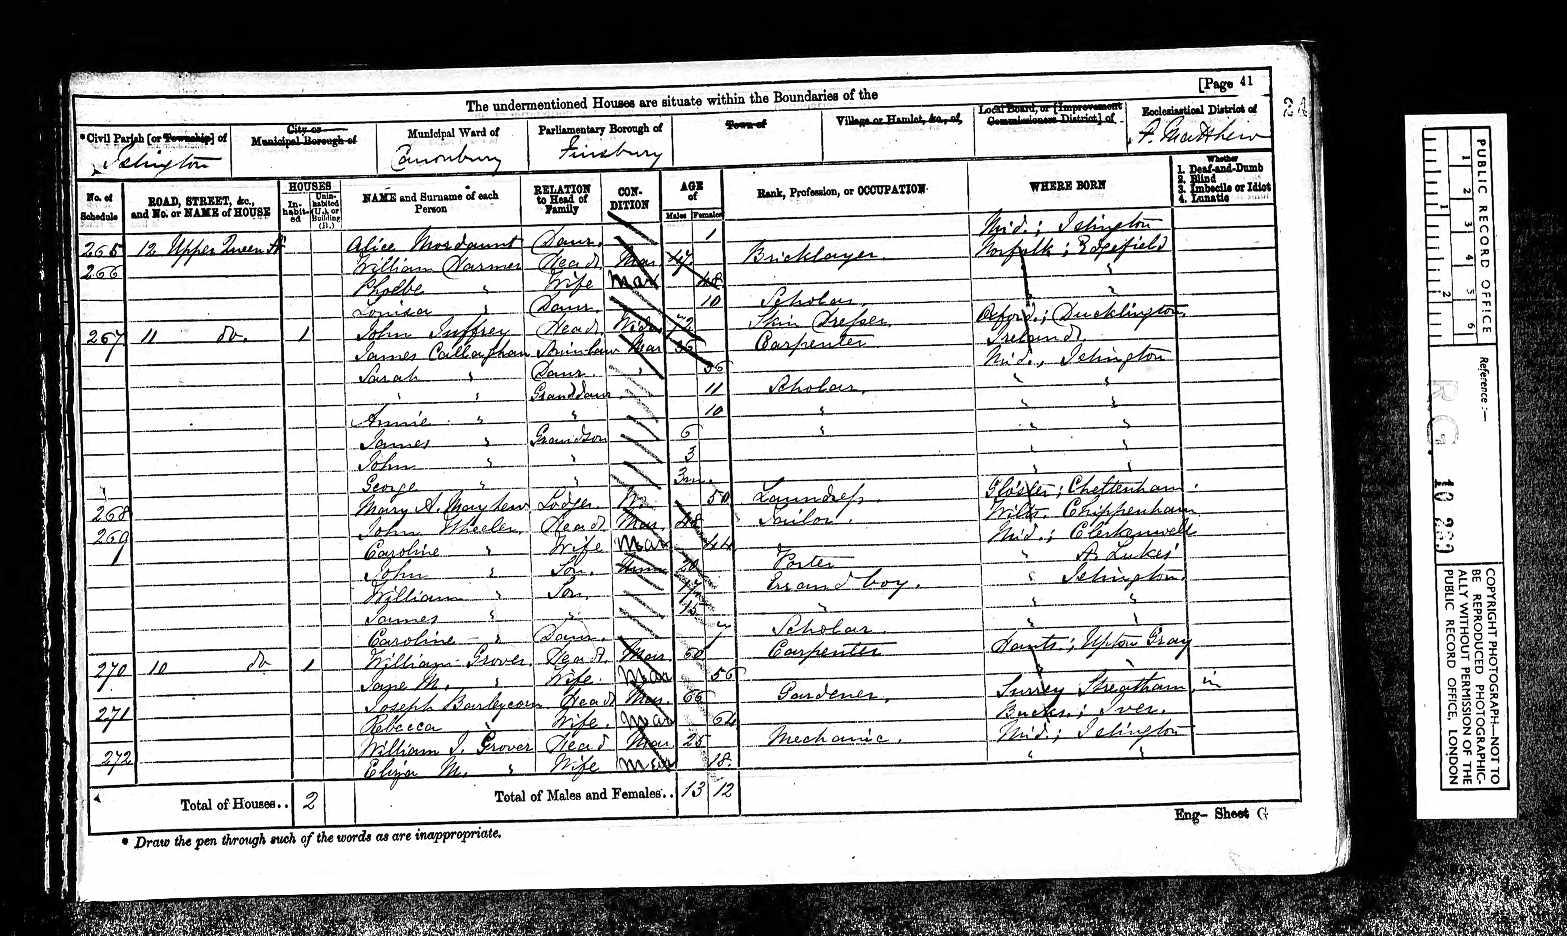 [Page 41
The undermentioned Houses are situate within the Boundaries of the
*Civil Parish [or Township] of
City or Municipal Borough of
Municipal Ward of
Parliamentary Borough of
Town of
Village or Hamlet, &c., of,
Local Board, or [Improvement Commissioners District] of
Ecclesiastical District of
Islington
Canonbury
Finsbury
St. Matthew
No. of Schedule
ROAD, STREET, &c., and No. or NAME of HOUSE
HOUSES
In-habit-ed
Unin-habited (U.), or Building (B.)
NAME and Surname of each Person
RELATION to Head of Family
CON-DITION
AGE of
Males
Females
Rank, Profession, or OCCUPATION
WHERE BORN
Whether
1. Deaf-and-Dumb
2. Blind
3. Imbecile or Idiot
4. Lunatic
265 12 Upper Queen St Alice Mordaunt Daur. 1 Mid.; Islington
266 William Harmer Head Mar 47 Bricklayer. Norfolk; Edgefield
Phoebe " Wife Mar 48 " "
Louisa " Daur. 10 Scholar.
267 11 do. 1 John Juffrey Head Widr 72 Skin Dresser. Oxford.; Ducklington
James Callaghan Soninlaw Mar 36 Carpenter Ireland
Sarah " Daur. " 36 Mid., Islington
" " Granddaur 11 Scholar. " "
Annie " " 10 " " "
James " Grandson 6 " " "
John " " 3 " "
George " " 3m. " "
268 Mary A. Mayhew Lodger. W. 50 Laundress. Gloster; Cheltenham.
269 John Wheeler Head Mar. 48 Tailor. Wilts. Chippenham
Caroline " Wife Mar 44 Mid.; Clerkenwell
John " Son. Unm 20 Porter " St Lukes'
William " Son. 17 Errand boy. " Islington.
James " " 15 " " "
Caroline " Daur. Scholar " "
270 10 do 1 William Grover Head. Mar 50 Carpenter Hants.; Upton Gray
Jane M. " Wife. Mar 56 "
271 Joseph Barleycorn Head Mar. 66 Gardener. Surrey Streatham
Rebecca " Wife. Mar 64 Bucks.; Iver.
272 William J. Grover Head Mar 25 Mechanic. Mid.; Islington
Eliza M. " Wife Mar 18. " "
Total of Houses.. 2
Total of Males and Females.. 13 12
Eng- Sheet G
* Draw the pen through such of the words as are inappropriate.
PUBLIC RECORD OFFICE
1 2 3 4 5 6
1 2
Reference :-
RG. 10 269
COPYRIGHT PHOTOGRAPH—NOT TO BE REPRODUCED PHOTOGRAPHIC-ALLY WITHOUT PERMISSION OF THE PUBLIC RECORD OFFICE, LONDON